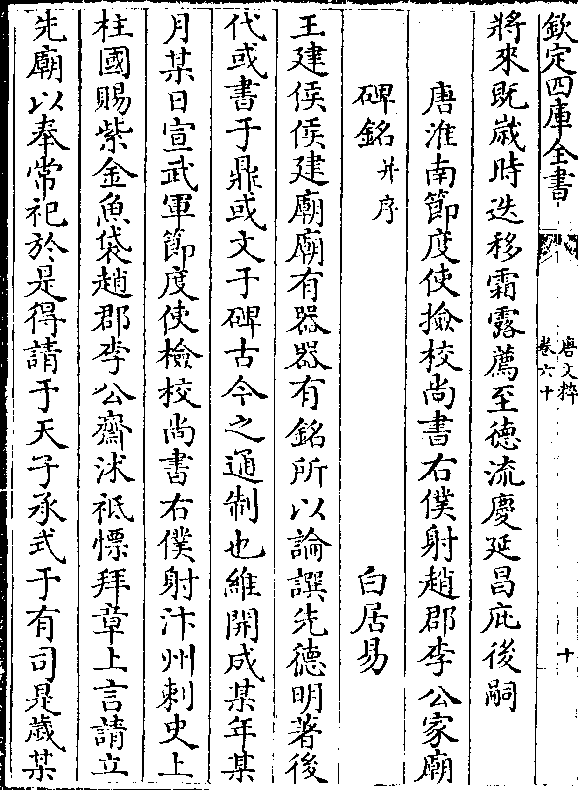 欽定四庫全書
唐文粹
卷六十
十
將來既嵗時迭移霜露薦至德流慶延昌庇後嗣
唐淮南節度使撿校尚書右僕射趙郡李公家廟
碑銘并序
白居易
王建侯侯建廟廟有器器有銘所以論譔先德明著後
代或書于鼎或文于碑古今之通制也維開成某年某
月某日宣武軍節度使檢校尚書右僕射汴州刺史上
柱國賜紫金魚袋趙郡李公齋沭祗慄拜章上言請立
先廟以奉常祀於是得請于天子承式于有司是嵗某